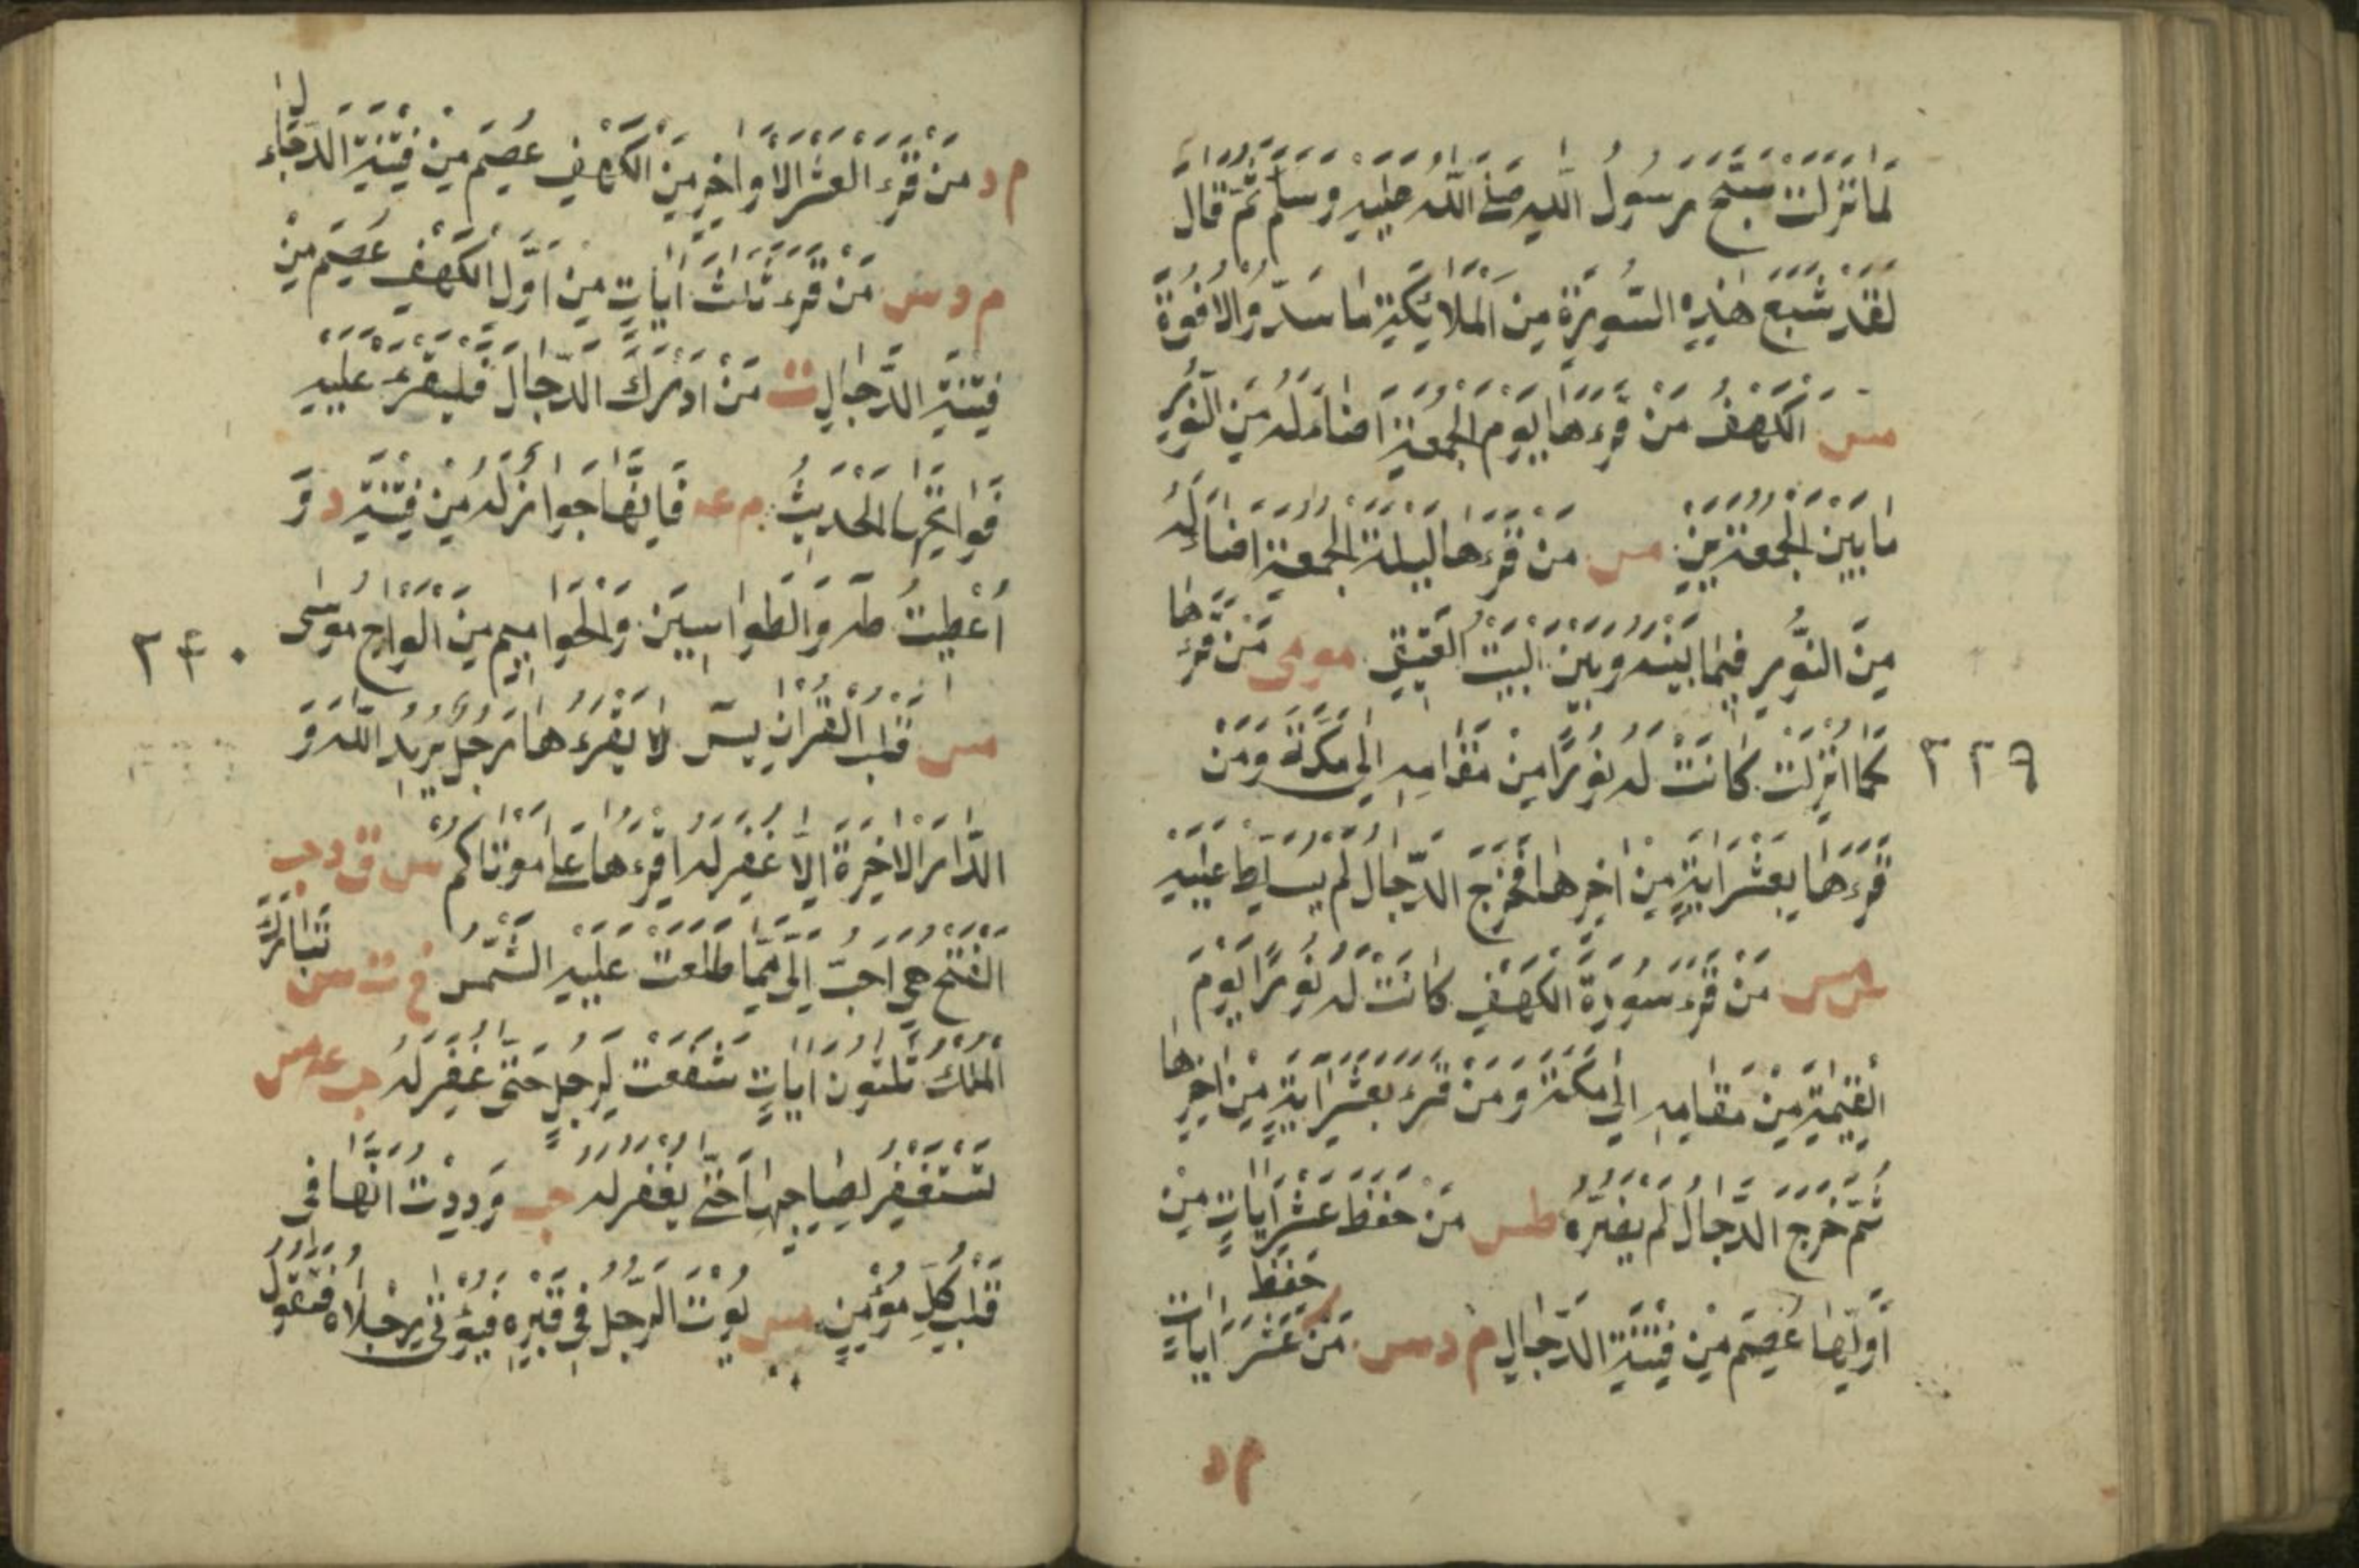 لَمَّا نَزَلَتْ سَبَّحَ رَسُولُ اللهِ صَلَّى اللهُ عَلَيْهِ وَسَلَّمَ ثُمَّ قَالَ
لَقَدْ شَيَّعَ هٰذِهِ السُّورَةَ مِنَ الْمَلَائِكَةِ مَا سَدَّ وُالْاُفُوقَ
مس اَلْكَهْفُ مَنْ قَرَءَهَا يَوْمَ الْجُمُعَةِ اَضَاءَ لَهُ مِنَ النُّورِ
مَا بَيْنَ الْجُمُعَتَيْنِ مس مَنْ قَرَءَهَا لَيْلَةَ الْجُمُعَةِ اَضَاءَ لَهُ
مِنَ النُّورِ فِيمَا بَيْنَهُ وَبَيْنَ الْبَيْتِ الْعَتِيقِ مومى مَنْ قَرَءَهَا
كَمَا اُنْزِلَتْ كَانَتْ لَهُ نُورًا مِنْ مَقَامِهِ اِلٰى مَكَّةَ وَمَنْ
٢٣٩
قَرَءَهَا بِعَشْرِ اٰيَةٍ مِنْ اٰخِرِهَا فَخَرَجَ الدَّجَّالُ لَمْ يُسَلَّطْ عَلَيْهِ
س مس مَنْ قَرَءَ سُورَةَ الْكَهْفِ كَانَتْ لَهُ نُورًا يَوْمَ
الْقِيٰمَةِ مِنْ مَقَامِهِ اِلٰى مَكَّةَ وَمَنْ قَرَءَ بِعَشْرِ اٰيَةٍ مِنْ اٰخِرِهَا
ثُمَّ خَرَجَ الدَّجَّالُ لَمْ يَضُرَّهُ طس مَنْ حَفِظَ عَشْرَ اٰيَاتٍ مِنْ
اَوَّلِهَا عُصِمَ مِنْ فِتْنَةِ الدَّجَّالِ م د س مَنْ حَفِظَ عَشَرَ اٰيَاتٍ
م د
م د مَنْ قَرَءَ الْعَشْرَ الْاَوَاخِرَ مِنَ الْكَهْفِ عُصِمَ مِنْ فِتْنَةِ الدَّجَّالِ
م د س مَنْ قَرَءَ ثَلٰثَ اٰيَاتٍ مِنْ اَوَّلِ الْكَهْفِ عُصِمَ مِنْ
فِتْنَةِ الدَّجَّالِ ت مَنْ اَدْرَكَ الدَّجَّالَ فَلْيَقْرَءْ عَلَيْهِ
فَوَاتِحَهَا الْحَدِيثُ م عه فَاِنَّهَا جِوَارٌ لَهُ مِنْ فِتْنَتِهِ د وَ
اُعْطِيتُ طٰهٰ وَالطَّوَاسِينَ وَالْحَوَامِيمَ مِنْ اَلْوَاحِ مُوسٰى
٢٤٠
مس قَلْبُ الْقُرْاٰنِ يٰسٓ لَا يَقْرَءُهَا رَجُلٌ يُرِيدُ اللهَ وَ
الدَّارَ الْاٰخِرَةَ اِلَّا غُفِرَ لَهُ اِقْرَءُهَا عَلٰى مَوْتَاكُمْ س ق د حب
الْفَتْحُ هِيَ اَحَبُّ اِلَيَّ مِمَّا طَلَعَتْ عَلَيْهِ الشَّمْسُ خ ت س تَبَارَكَ
الْمُلْكُ ثَلٰثُونَ اٰيَاتٍ شَفَعَتْ لِرَجُلٍ حَتّٰى غُفِرَ لَهُ حب عه مس
تَسْتَغْفِرُ لِصَاحِبِهَا حَتّٰى يُغْفَرَ لَهُ حب وَدِدْتُ اَنَّهَا فِي
قَلْبِ كُلِّ مُؤْمِنٍ مس يُوتَى الرَّجُلُ فِي قَبْرِهِ فَيُؤْتٰى رِجْلَاهُ فَتَقُولُ